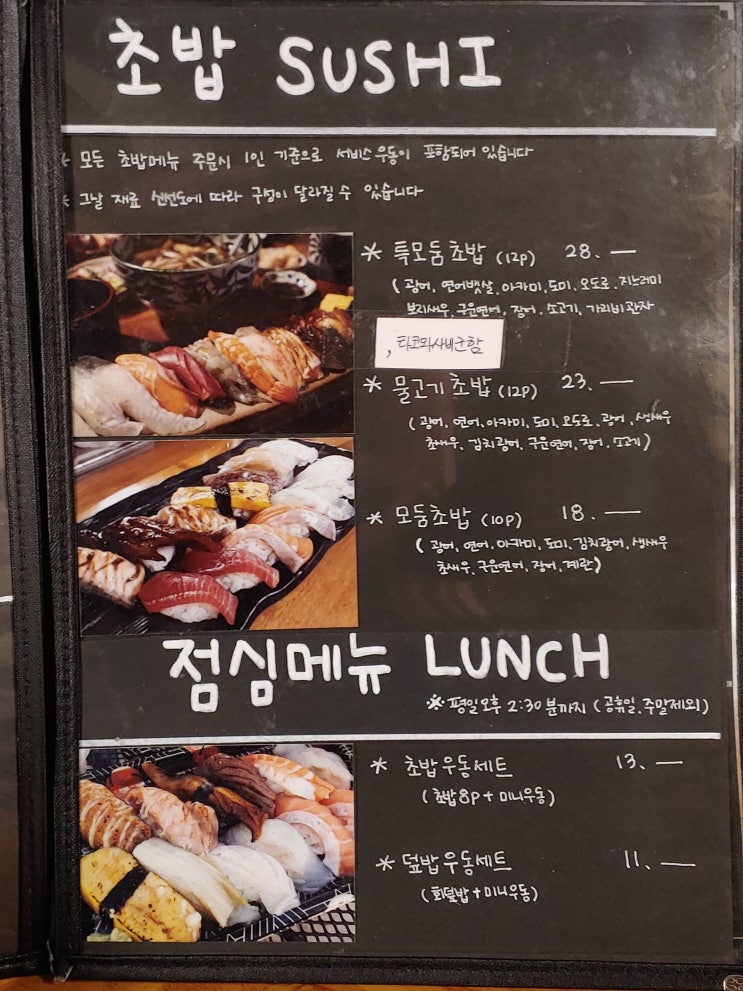 초밥 SUSHI
* 모든 초밥메뉴 주문시 1인 기준으로 서비스우동이 포함되어 있습니다
* 그날 재료 신선도에 따라 구성이 달라질 수 있습니다
* 특모둠초밥 (12P) 28. —
( 광어, 연어뱃살, 아카미, 도미, 오도로, 지느러미
보리새우, 구운연어, 장어, 소고기, 가리비관자
, 타코와사비군함
* 물고기초밥 (12P) 23. —
( 광어, 연어, 아카미, 도미, 오도로, 광어, 생새우
초새우, 김치광어, 구운연어, 장어, 소고기 )
* 모둠초밥 (10P) 18. —
( 광어, 연어, 아카미, 도미, 김치광어, 생새우
초새우, 구운연어, 장어, 계란 )
점심메뉴 LUNCH
※ 평일오후 2:30 분까지 ( 공휴일, 주말제외 )
* 초밥우동세트 13. —
( 초밥8P + 미니우동 )
* 덮밥우동세트 11. —
( 회덮밥 + 미니우동 )